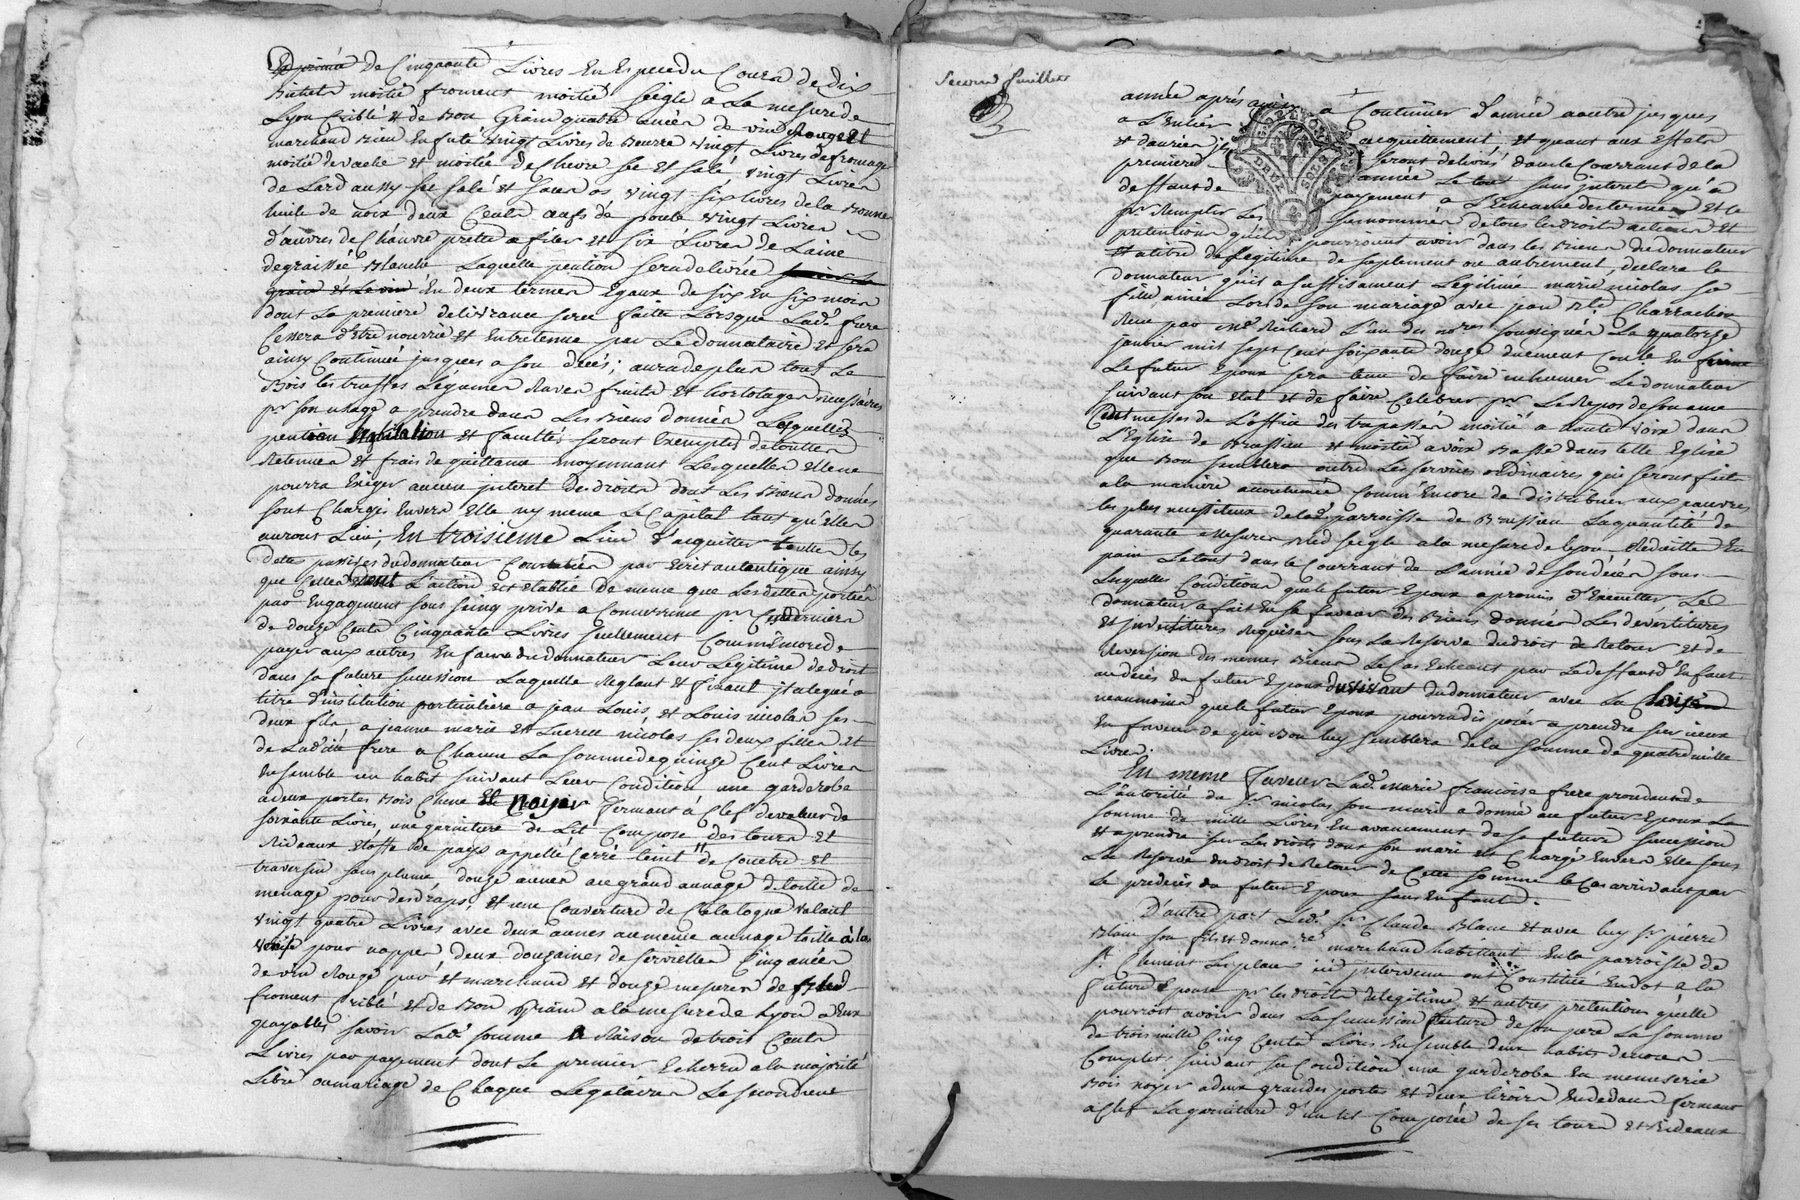 de Cinquante Livres En Espece du Cours de dix
Bichets moitié froment moitié seigle a La mesure de
Lyon Criblé Et de Bon Grain quatre anées de vin Rouge Et
marchand Rien En futé vingt Livres de Beurre vingt Livres de fromage
moitié de vache et moitié de Chevre sec Et salé vingt Livres
de Lard aussy sec salé Et sans os vingt six livres de la Bonne
huile de noix deux Cents œufs de poule vingt Livres
d'œuvres de Chanvre prette a filer Et six Livres de Laine
degraissée Blanche Laquelle pention sera delivrée
grain et Le vin En deux termes Egaux de six En six mois
dont La premiere delivrance sera faitte Lorsque Lade frere
Cessera d'Etre nourrie Et Entretenue par Le donnataire Et sera
ainsy Continuée jusques a son décés; aura de plus tout Le
Bois les truffes Légumes Raves fruits Et hortolages necessaires
pr son usage a prendre dans Les Biens donnés Lesquelles
pention habitation Et facultés seront Exemptes de toutte
Retenue Et frais de quittance moyennant Lesquelles Elle ne
pourra Exiger aucun jnteret de droits dont Les Biens donnés
sont Chargés Envers Elle ny meme Le Capital tant qu'elles
auront Lieu; En troisieme Lieu d'acquitter touttes les
dettes passives du donnateur par Ecrit autentique ainsy
que Celles dont L'action Est Etablie De meme que Les dettes portées
par Engagement sous seing privé a Concurrence pr Ces derniers
de douze Cents Cinquante Livres seullement Comme Encore de
payer aux autres Enfans du donnateur Leur Legitime de droit
dans sa future sucession Laquelle Reglant Et fixant jl a legué a
titre d'institution particuliere a jean Louis, et Louis nicolas ses
deux fils, a jeanne marie Et Lucresse nicolas ses deux filles Et
de Ladite frere a Chacun La somme de quinze Cent Livres
Ensemble un habit suivant Leur Condition une garderobe
a deux portes Bois Chene Et noyer fermant a Clef de valeur de
soixante Livres, une garniture de Lit Composé des tours et
Rideaux Etoffe de pays appellé Carré teint de Couetre Et
traversin sans plume douze aunes au grand aunage de toille de
menage pour des draps, Et une Couverture de Catalogne valant
vingt quatre Livres avec deux aunes au meme aunage toille à la
Venise pour nappes deux douzaines de serviettes Cinq anées
de vin Rouge pur et marchand Et douze mesures de Bled
froment Criblé Et de Bon Grain a la mesure de Lyon a Eux
payables savoir Lade somme a Raison de trois Cents
Livres par payement dont Le premier Echerra a la majorité
Libre ou mariage de Chaque Legataires Le second une
Second feuillet
année aprés ainsy a Continuer d'année a autre jusques
a L'entier acquittement; et quant aux Effets
et danrées jls seront delivrés dans le Courrant de la
premiere année Le tout sans jnteret qu'a
deffaut de payement a L'Echeance des termes Et le
pr Remplir Les surnommés de tous les droits actions Et
pretentions qu'ils pourroient avoir dans les Biens du donnateur
Et a titre de Legitime de suplement ou autrement, declare le
donnateur qu'il a suffisament Légitimé marie nicolas sa
fille ainée Lors de son mariage avec jean Bte Charrachon
Recu par Me Richard L'un des nores soussignés La quatorze
janvier mil sept Cent soixante douze duement Controlé En
Le futur Epoux sera tenu de faire inhumer Le donnateur
suivant son Etat Et de faire Célébrer pr Le Repos de son ame
Cent messes de L'office des trapassés moitié a haute voix dans
L'Eglise de Brussieu et moitié a voix Basse dans telle Eglise
que Bon semblera outre Les services ordinaires qui seront faits
a la maniere accoutumée Comme Encore de distribuer aux pauvres
les plus necessiteux de lade parroisse de Brussieu La quantité de
quarante mesures Bled seigle a la mesure de Lyon Réduitte En
pain Le tout dans le Courrant de L'année de son décés sous
Lesquelles Conditions que le futur Epoux a promis d'Executter Le
donnateur a fait En sa faveur des Biens donnés Les devestitures
Et jnvestitures Requises sous La Reserve du droit de Retour Et de
Reversion des memes Biens Le Cas Echeant par Le deffaut d'Enfants
au decés du futur Epoux du vivant du donnateur avec La
neanmoins que le futur Epoux pourra disposer a prendre sur iceux
En faveur de qui Bon luy semblera de la somme de quatre mille
Livres.
En meme faveur Lade marie francoise frere procedante de
L'autorité du sr nicolas son mari a donné au futur Epoux La
somme de mille Livres En avancement de sa future sucession
Et a prendre sur Les droits dont son mari est Chargé Envers Elle sous
La Reserve du droit de Retour de Cette somme le Cas arrivant par
Le predecés du futur Epoux sans Enfants.
D'autre part Ledt sr Claude Blanc et avec luy sr pierre
Blanc son fils et donnore marchand habittant En la parroisse de
st Clement Les places ici intervenu ont Constitué En dot a la
future Epouse pr les droits de legitime Et autres pretentions qu'elle
pourroit avoir dans La sucession future de son pere La somme
de trois mille Cinq Cents Livres Ensemble deux habits de noces
Complets suivant sa Condition une garderobe En menuserie
Bois noyer a deux grandes portes Et deux tiroirs En dedans fermant
a Clef La garniture d'un lit Composée de ses tours Et Rideaux